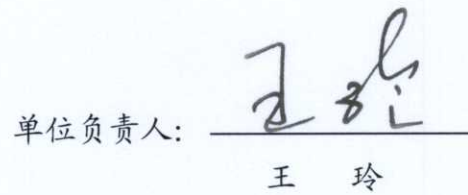 单位负责人：王玲
王 玲